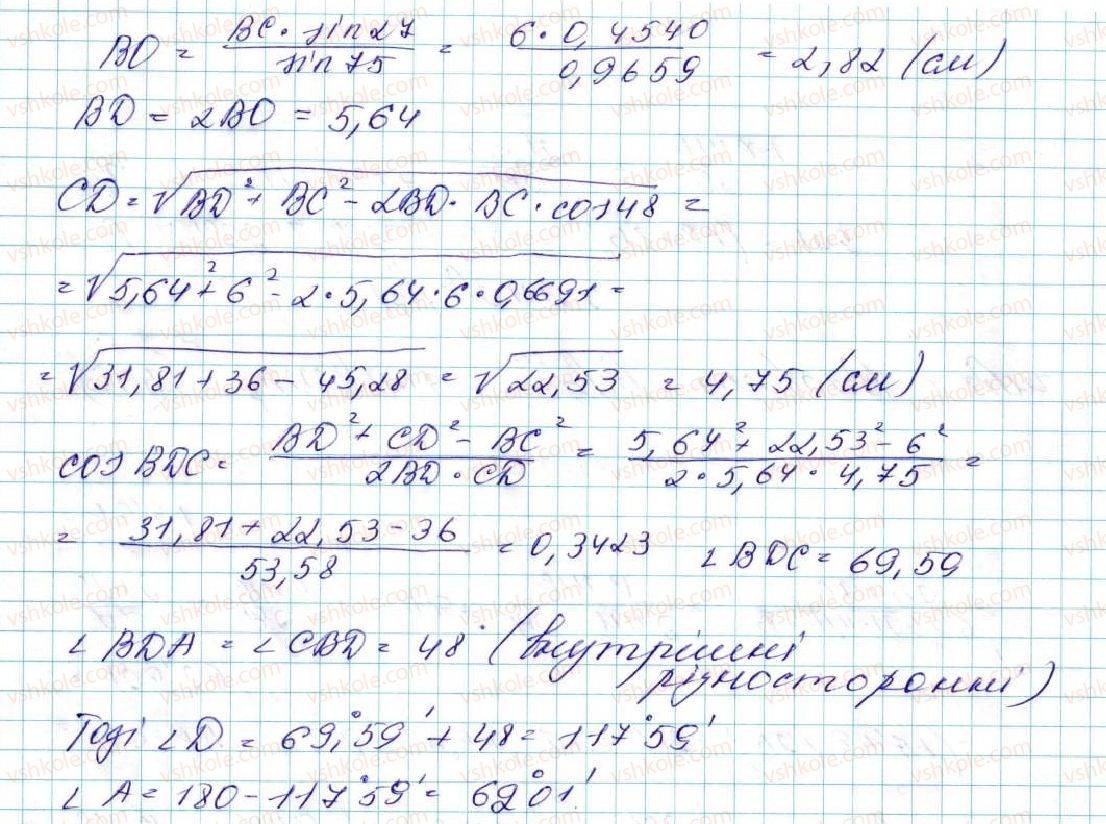 BO = BC · sin 27 / sin 75 = 6 · 0,4540 / 0,9659 = 2,82 (см)
BD = 2BO = 5,64
CD = √BD² + BC² - 2BD · BC · cos 48 =
= √5,64² + 6² - 2 · 5,64 · 6 · 0,6691 =
= √31,81 + 36 - 45,28 = √22,53 = 4,75 (см)
cos BDC = BD² + CD² - BC² / 2BD · CD = 5,64² + 22,53² - 6² / 2 · 5,64 · 4,75 =
= 31,81 + 22,53 - 36 / 53,58 = 0,3423 ∠BDC = 69,59
∠BDA = ∠CBD = 48° (внутрішні
різносторонні)
Тоді ∠D = 69,°59' + 48 = 117°59'
∠A = 180 - 117°59' = 62°01'.